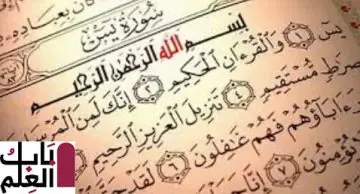 كَانَ بِعِبَادِهِ
سُورَةُ يسٓ
بِسْمِ اللَّهِ الرَّحْمَٰنِ الرَّحِيمِ
يسٓ ١ وَالْقُرْءَانِ الْحَكِيمِ ٢ إِنَّكَ لَمِنَ الْمُرْ
صِرَٰطٍ مُّسْتَقِيمٍ ٤ تَنزِيلَ الْعَزِيزِ الرَّحِيمِ
ءَابَاؤُهُمْ فَهُمْ غَٰفِلُونَ ٦ لَقَدْ
يُؤْمِنُونَ ٧ إِنَّا
باب
العلم